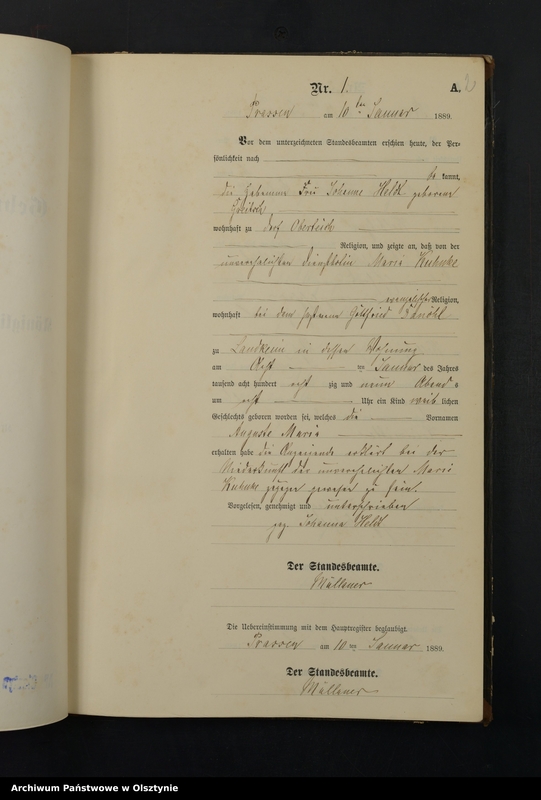 Nr. 1. A. 2
am 10 ten Januar 1889.
Vor dem unterzeichneten Standesbeamten erschien heute, der Per-
sönlichkeit nach
be kannt,
die Hebamme Frau Johanne Heldt geborene
wohnhaft zu Dorf Oberteich
Religion, und zeigte an, daß von der
unverehelichten Dienstbotin Marie
evangelischer Religion,
wohnhaft bei dem Gottfried
zu Landkeim in dessen Wohnung
am Acht ten Januar des Jahres
tausend acht hundert acht zig und neun Abend s
um acht Uhr ein Kind weib lichen
Geschlechts geboren worden sei, welches die Vornamen
Auguste Marie
erhalten habe die Anzeigende erklärt bei der
Niederkunft der unverehelichten Marie
zugegen gewesen zu sein.
Vorgelesen, genehmigt und unterschrieben
gez. Johanna Heldt
Der Standesbeamte.
Die Uebereinstimmung mit dem Hauptregister beglaubigt.
am 10 ten Januar 1889.
Der Standesbeamte.
Archiwum Państwowe w Olsztynie